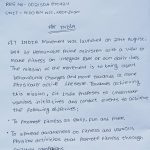 FIT INDIA
FIT INDIA Movement was launched on 29th August,
2019 by Honourable Prime Minister with a view to
make fitness an integral part of our daily lives.
The mission of the movement is to bring about
behavioural changes and move towards a more
physically active lifestyle. Towards achieving
this mission, Fit India proposes to undertake
various initiatives and conduct events to achieve
the following objectives:
To promote fitness as easy, fun and free.
To spread awareness on fitness and various
physical activities that promote fitness through